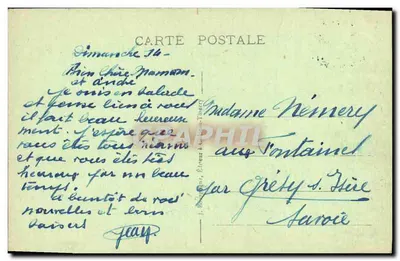 CARTE POSTALE
Dimanche 14 -
Bien Chère Maman
et André
Je suis en balade
et pense bien à vous
il fait beau heureuse
ment. J'espère que
vous êtes tous
et que vous êtes très
heureux par un beau
temps.
à bientôt de vos
nouvelles et bons
baisers
Jean
Madame Némery
aux Fontaines
par Grésy s. Isère
Savoie